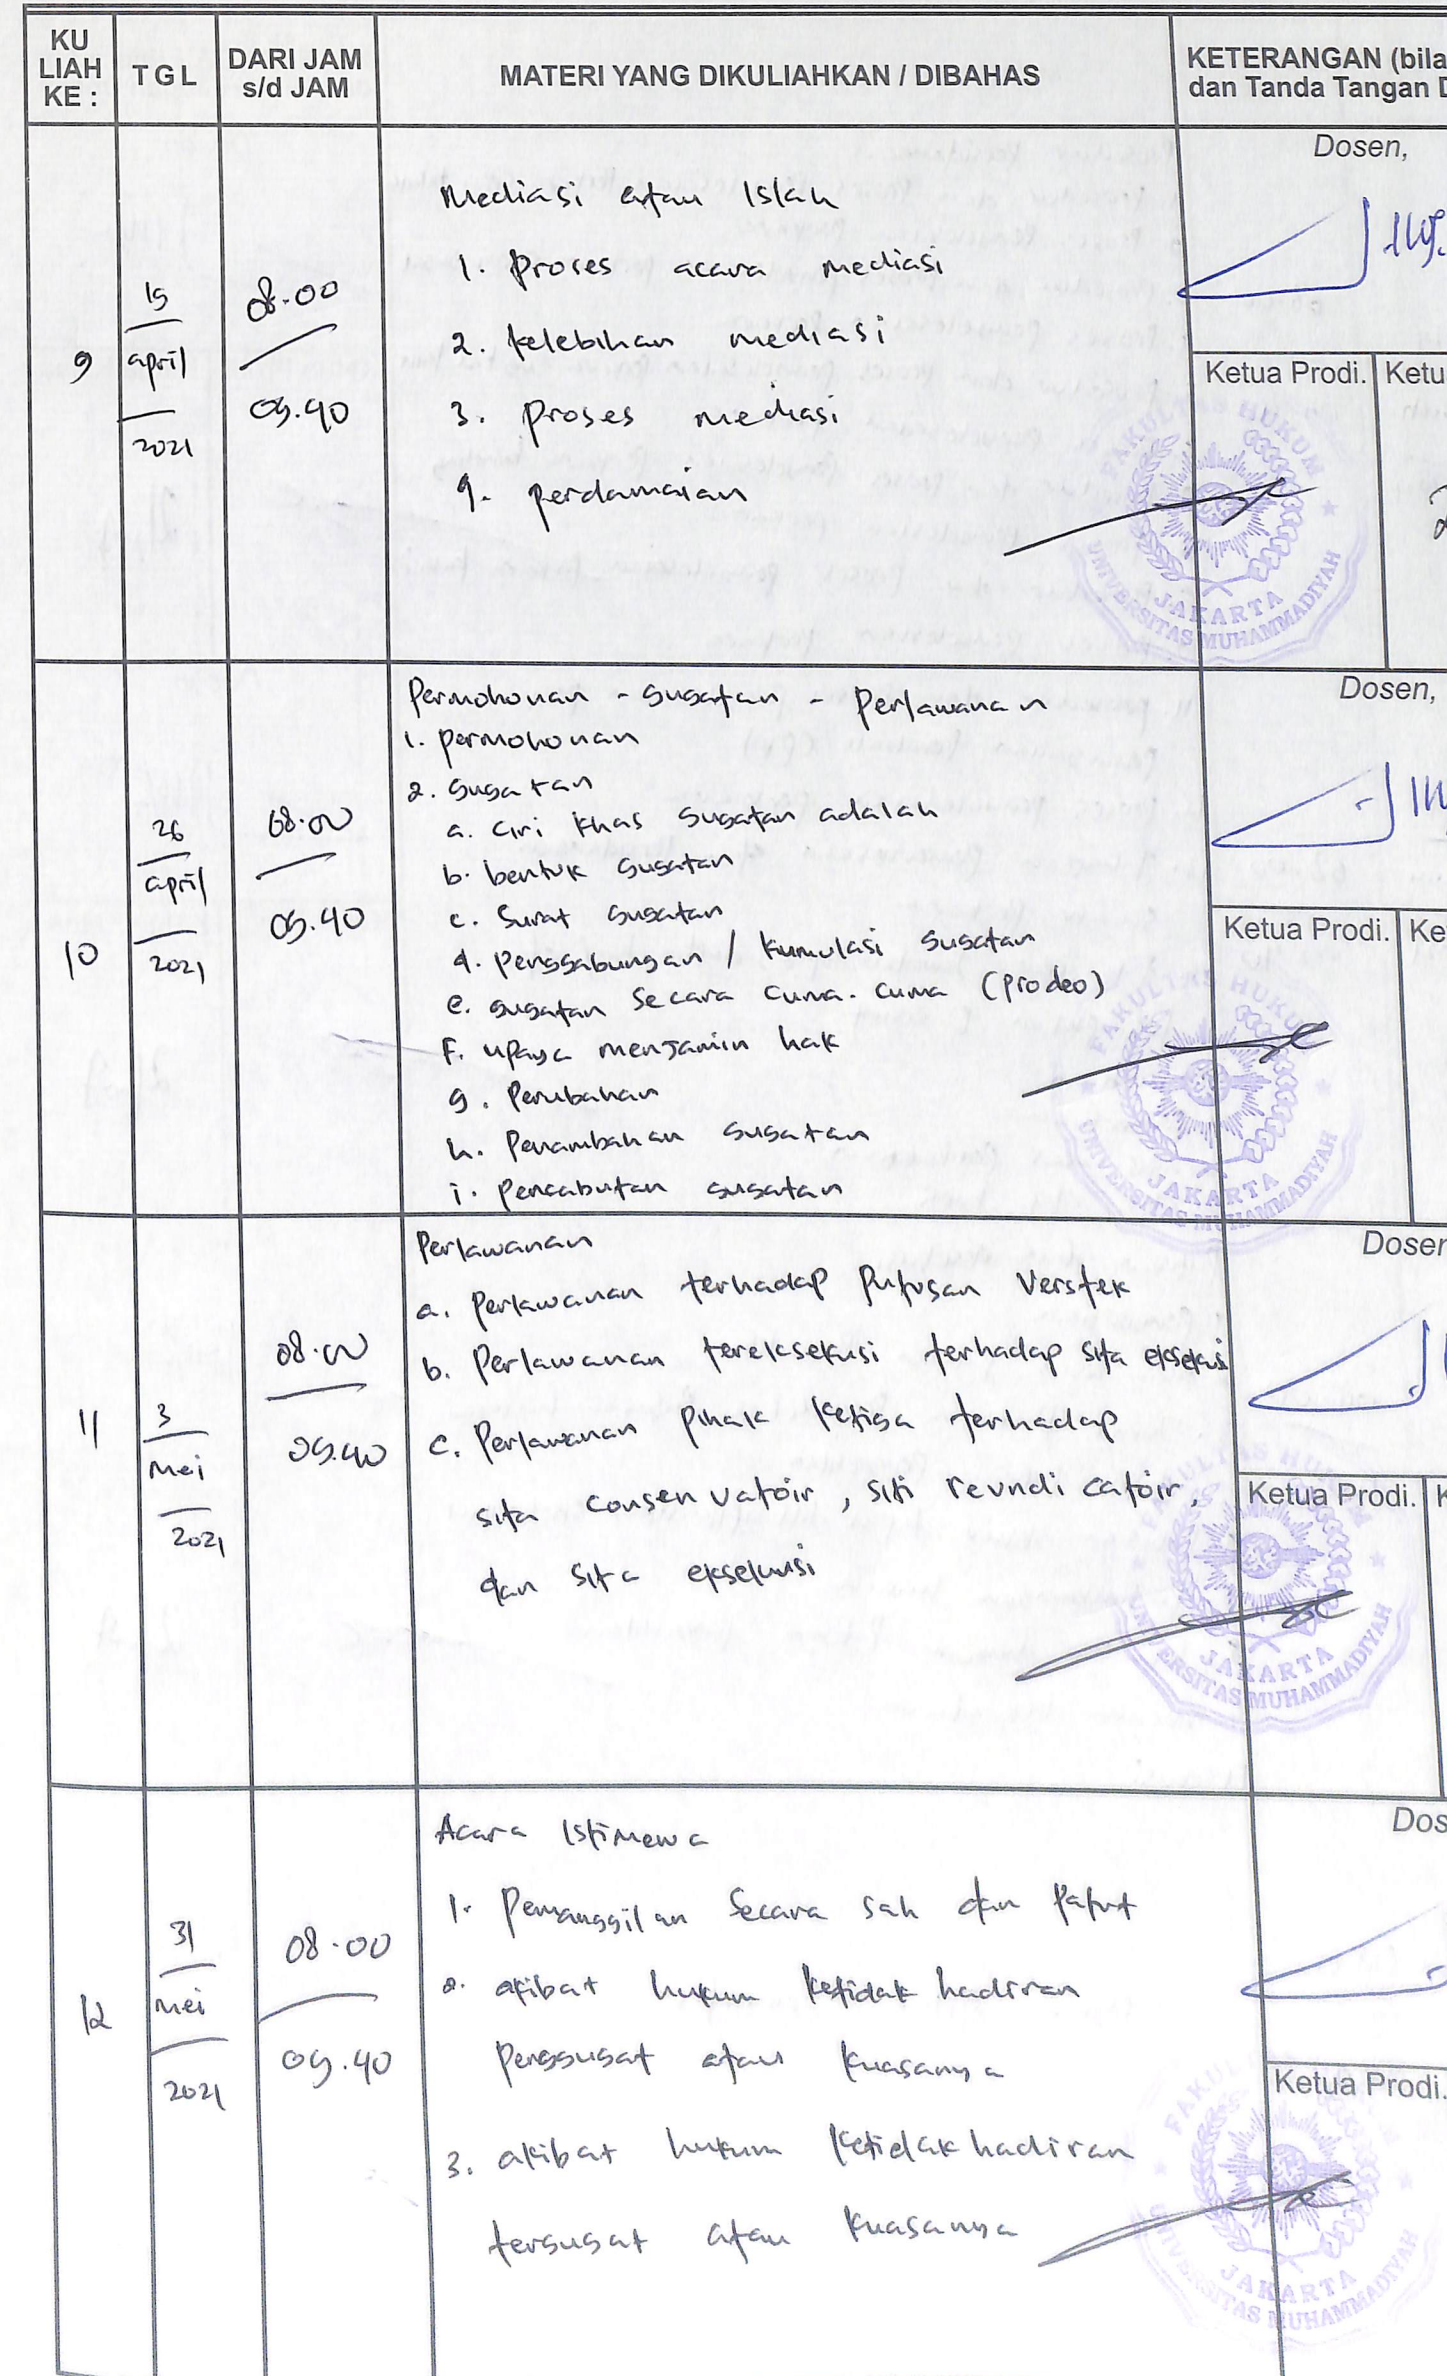 KU
LIAH
KE :
TGL
DARI JAM
s/d JAM
MATERI YANG DIKULIAHKAN / DIBAHAS
KETERANGAN (bila
dan Tanda Tangan D
9
april
2021
08.00
09.40
Mediasi atau Islah
1. proses acara mediasi
2. kelebihan mediasi
3. proses mediasi
4. perdamaian
Dosen,
Ketua Prodi.
Ketu
FAKULTAS HUKUM
UNIVERSITAS MUHAMMADIYAH
JAKARTA
10
26
april
2021
08.00
09.40
Permohonan - gugatan - Perlawanan
1. permohonan
2. gugatan
a. ciri khas gugatan adalah
b. bentuk gugatan
c. Surat gugatan
d. Penggabungan / kumulasi gugatan
e. gugatan secara cuma-cuma (prodeo)
F. upaya menjamin hak
g. Perubahan
h. Penambahan gugatan
i. Pencabutan gugatan
Dosen,
Ketua Prodi.
Ke
FAKULTAS HUKUM
UNIVERSITAS MUHAMMADIYAH
JAKARTA
11
3
Mei
2021
08.00
09.40
Perlawanan
a. Perlawanan terhadap putusan Verstek
b. Perlawanan tereksekusi terhadap sita eksekusi
c. Perlawanan pihak ketiga terhadap
sita consenvatoir, siti revndicatoir,
dan sita eksekusi
Dosen
Ketua Prodi.
K
FAKULTAS HUKUM
UNIVERSITAS MUHAMMADIYAH
JAKARTA
12
31
Mei
2021
08.00
09.40
Acara Istimewa
1. Pemanggilan Secara sah dan Patut
2. akibat hukum ketidak hadiran
Penggugat atau kuasanya
3. akibat hukum ketidak hadiran
tergugat atau kuasanya
Dos
Ketua Prodi.
JAKARTA